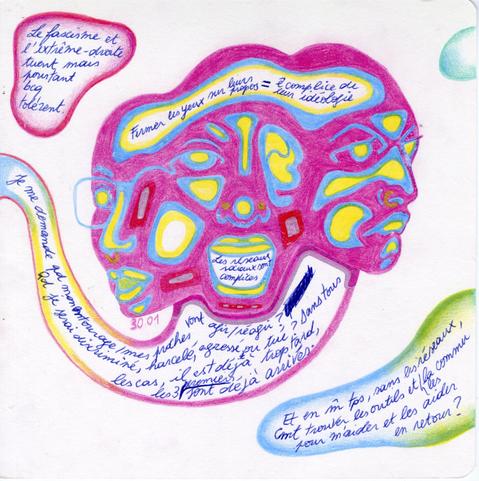 Le fascisme et
l'extrême-droite
tuent mais
pourtant
bcq
tolèrent.
Fermer les yeux sur leurs propos = ê complice de
leur idéologie
Les réseaux
sociaux sont
complices
30.01
Je me demande qd mon entourage / mes proches vont agir/réagir?
Qd je serai discriminé, harcelé, agressé ou tué? Dans tous
les cas, il est déjà trop tard,
les 3 premiers sont déjà arrivés.
Et en m̂ tps, sans les réseaux,
cmt trouver les outils et la commu
pour m'aider et les aider
en retour?